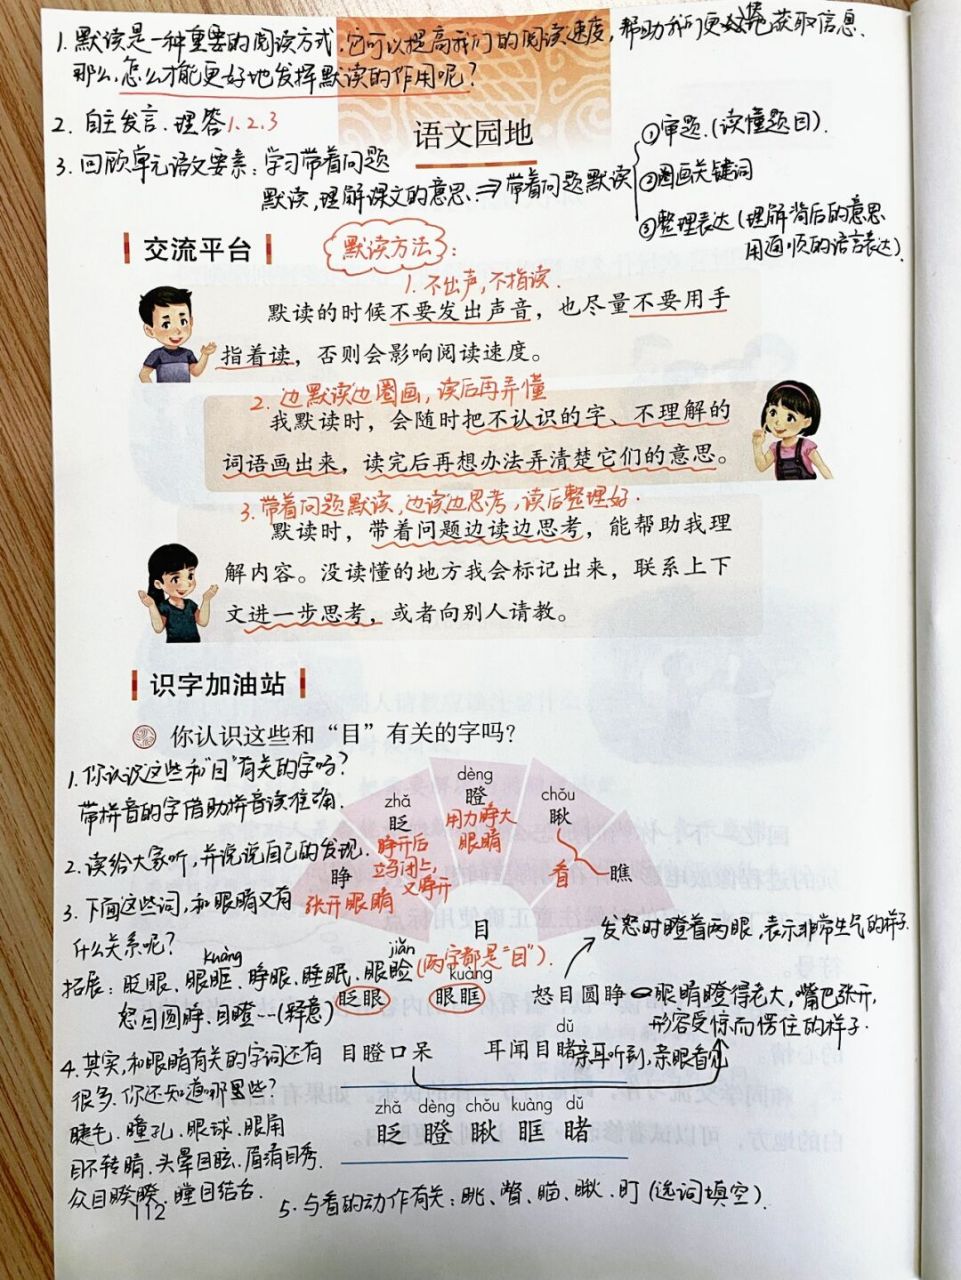 1. 默读是一种重要的阅读方式.它可以提高我们的阅读速度,帮助我们更好地获取信息.
那么,怎么才能更好地发挥默读的作用呢?
2. 自主发言.理答1.2.3
语文园地
3. 回顾单元语文要素:学习带着问题
默读,理解课文的意思.⇒带着问题默读
①审题.(读懂题目).
②圈画关键词
③整理表达(理解背后的意思
用通顺的语言表达)
交流平台
默读方法:
1.不出声,不指读.
默读的时候不要发出声音,也尽量不要用手
指着读,否则会影响阅读速度。
2.边默读边圈画,读后再弄懂
我默读时,会随时把不认识的字、不理解的
词语画出来,读完后再想办法弄清楚它们的意思。
3.带着问题默读,边读边思考,读后整理好.
默读时,带着问题边读边思考,能帮助我理
解内容。没读懂的地方我会标记出来,联系上下
文进一步思考,或者向别人请教。
识字加油站
你认识这些和“目”有关的字吗?
1.你认识这些和"目"有关的字吗?
带拼音的字借助拼音读准确.
2.读给大家听,并说说自己的发现.
3.下面这些词,和眼睛又有
什么关系呢?
kuàng
jiǎn
拓展:眨眼、眼眶、睁眼、睡眠、眼睑(两字都是"目").
怒目圆睁、目瞪…(释意)
4.其实,和眼睛有关的字词还有
很多.你还知道哪里些?
睫毛、瞳孔、眼球、眼角
目不转睛、头晕目眩、眉清目秀.
众目睽睽、瞠目结舌.
112
dèng
瞪
用力睁大
眼睛
zhǎ
眨
睁开后
立马闭上,
又睁开
chǒu
瞅
看
瞧
睁
张开眼睛
目
kuàng
眨眼 眼眶 怒目圆睁
发怒时瞪着两眼,表示非常生气的样子.
眼睛瞪得老大,嘴巴张开,
形容受惊而愣住的样子.
dǔ
目瞪口呆 耳闻目睹
亲耳听到,亲眼看见
zhǎ dèng chǒu kuàng dǔ
眨 瞪 瞅 眶 睹
5.与看的动作有关:眺、瞥、瞄、瞅、盯(选词填空).